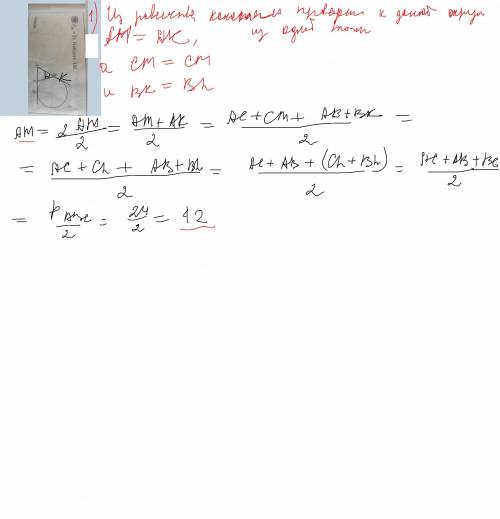 1) Из равенства касательных проведён к данной окруж
AM = AK, из одной точки
а CM = CM
и BK = Bh
AM = 2AM/2 = AM + AK/2 = AC + CM + AB + BK/2 =
= AC + Ch + AB + Bh/2 = AC + AB + (Ch + Bh)/2 = AC + AB + BC/2
= P/2 = 24/2 = 12